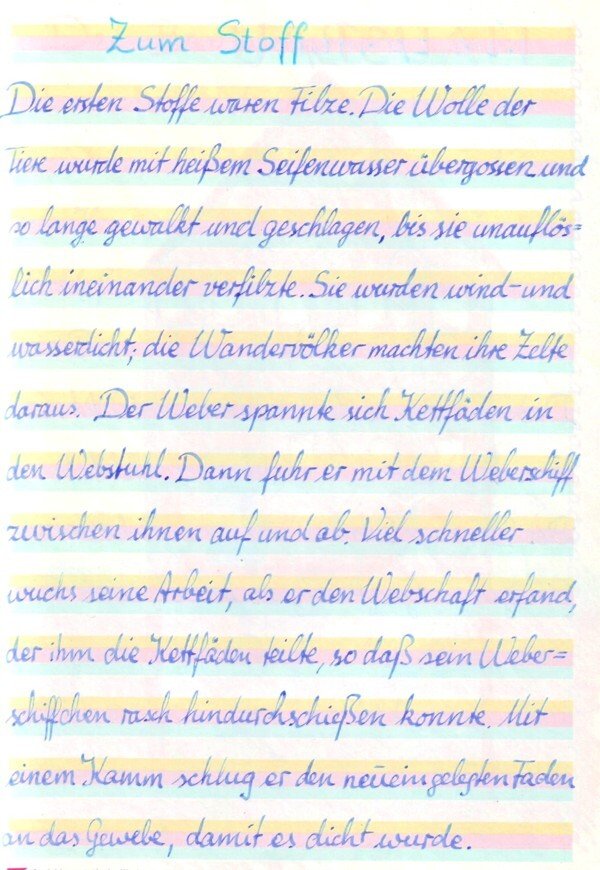 Zum Stoff
Die ersten Stoffe waren Filze. Die Wolle der
Tiere wurde mit heißem Seifenwasser übergossen und
so lange gewalkt und geschlagen, bis sie unauflös=
lich ineinander verfilzte. Sie wurden wind- und
wasserdicht; die Wandervölker machten ihre Zelte
daraus. Der Weber spannte sich Kettfäden in
den Webstuhl. Dann fuhr er mit dem Weberschiff
zwischen ihnen auf und ab. Viel schneller
wuchs seine Arbeit, als er den Webschaft erfand,
der ihm die Kettfäden teilte, so daß sein Weber=
schiffchen rasch hindurchschießen konnte. Mit
einem Kamm schlug er den neueingelegten Faden
an das Gewebe, damit es dicht wurde.